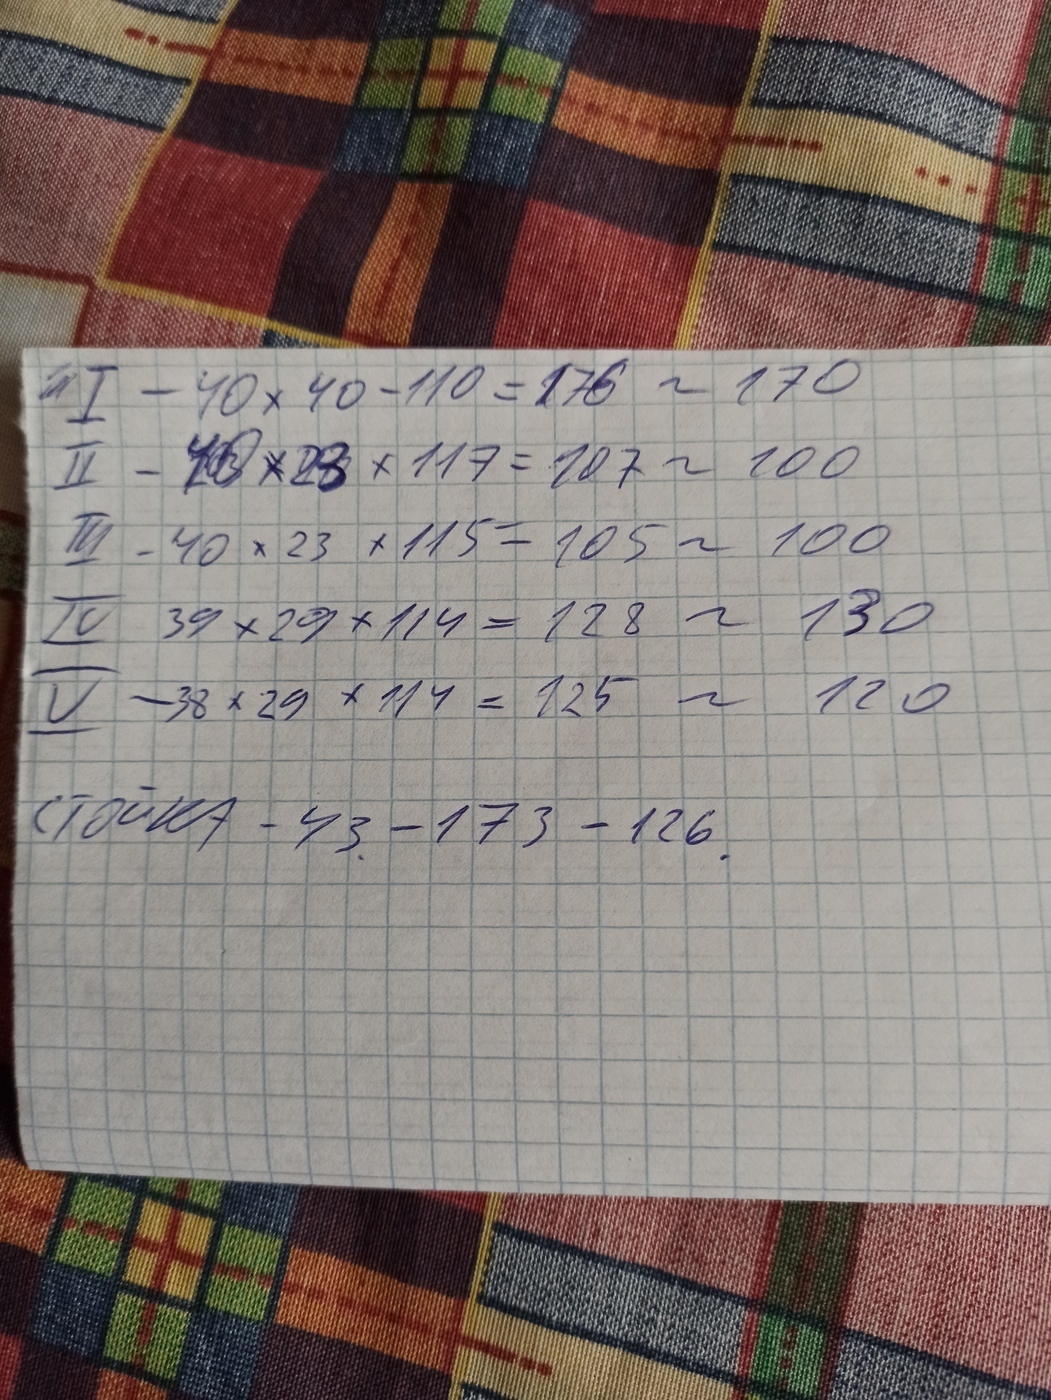 I - 40 x 40 - 110 = 176 ~ 170
II - 40 x 23 x 117 = 107 ~ 100
III - 40 x 23 x 115 = 105 ~ 100
IV 39 x 29 x 114 = 128 ~ 130
V - 38 x 29 x 114 = 125 ~ 120
СТОЙКА - 43. - 173 - 126.